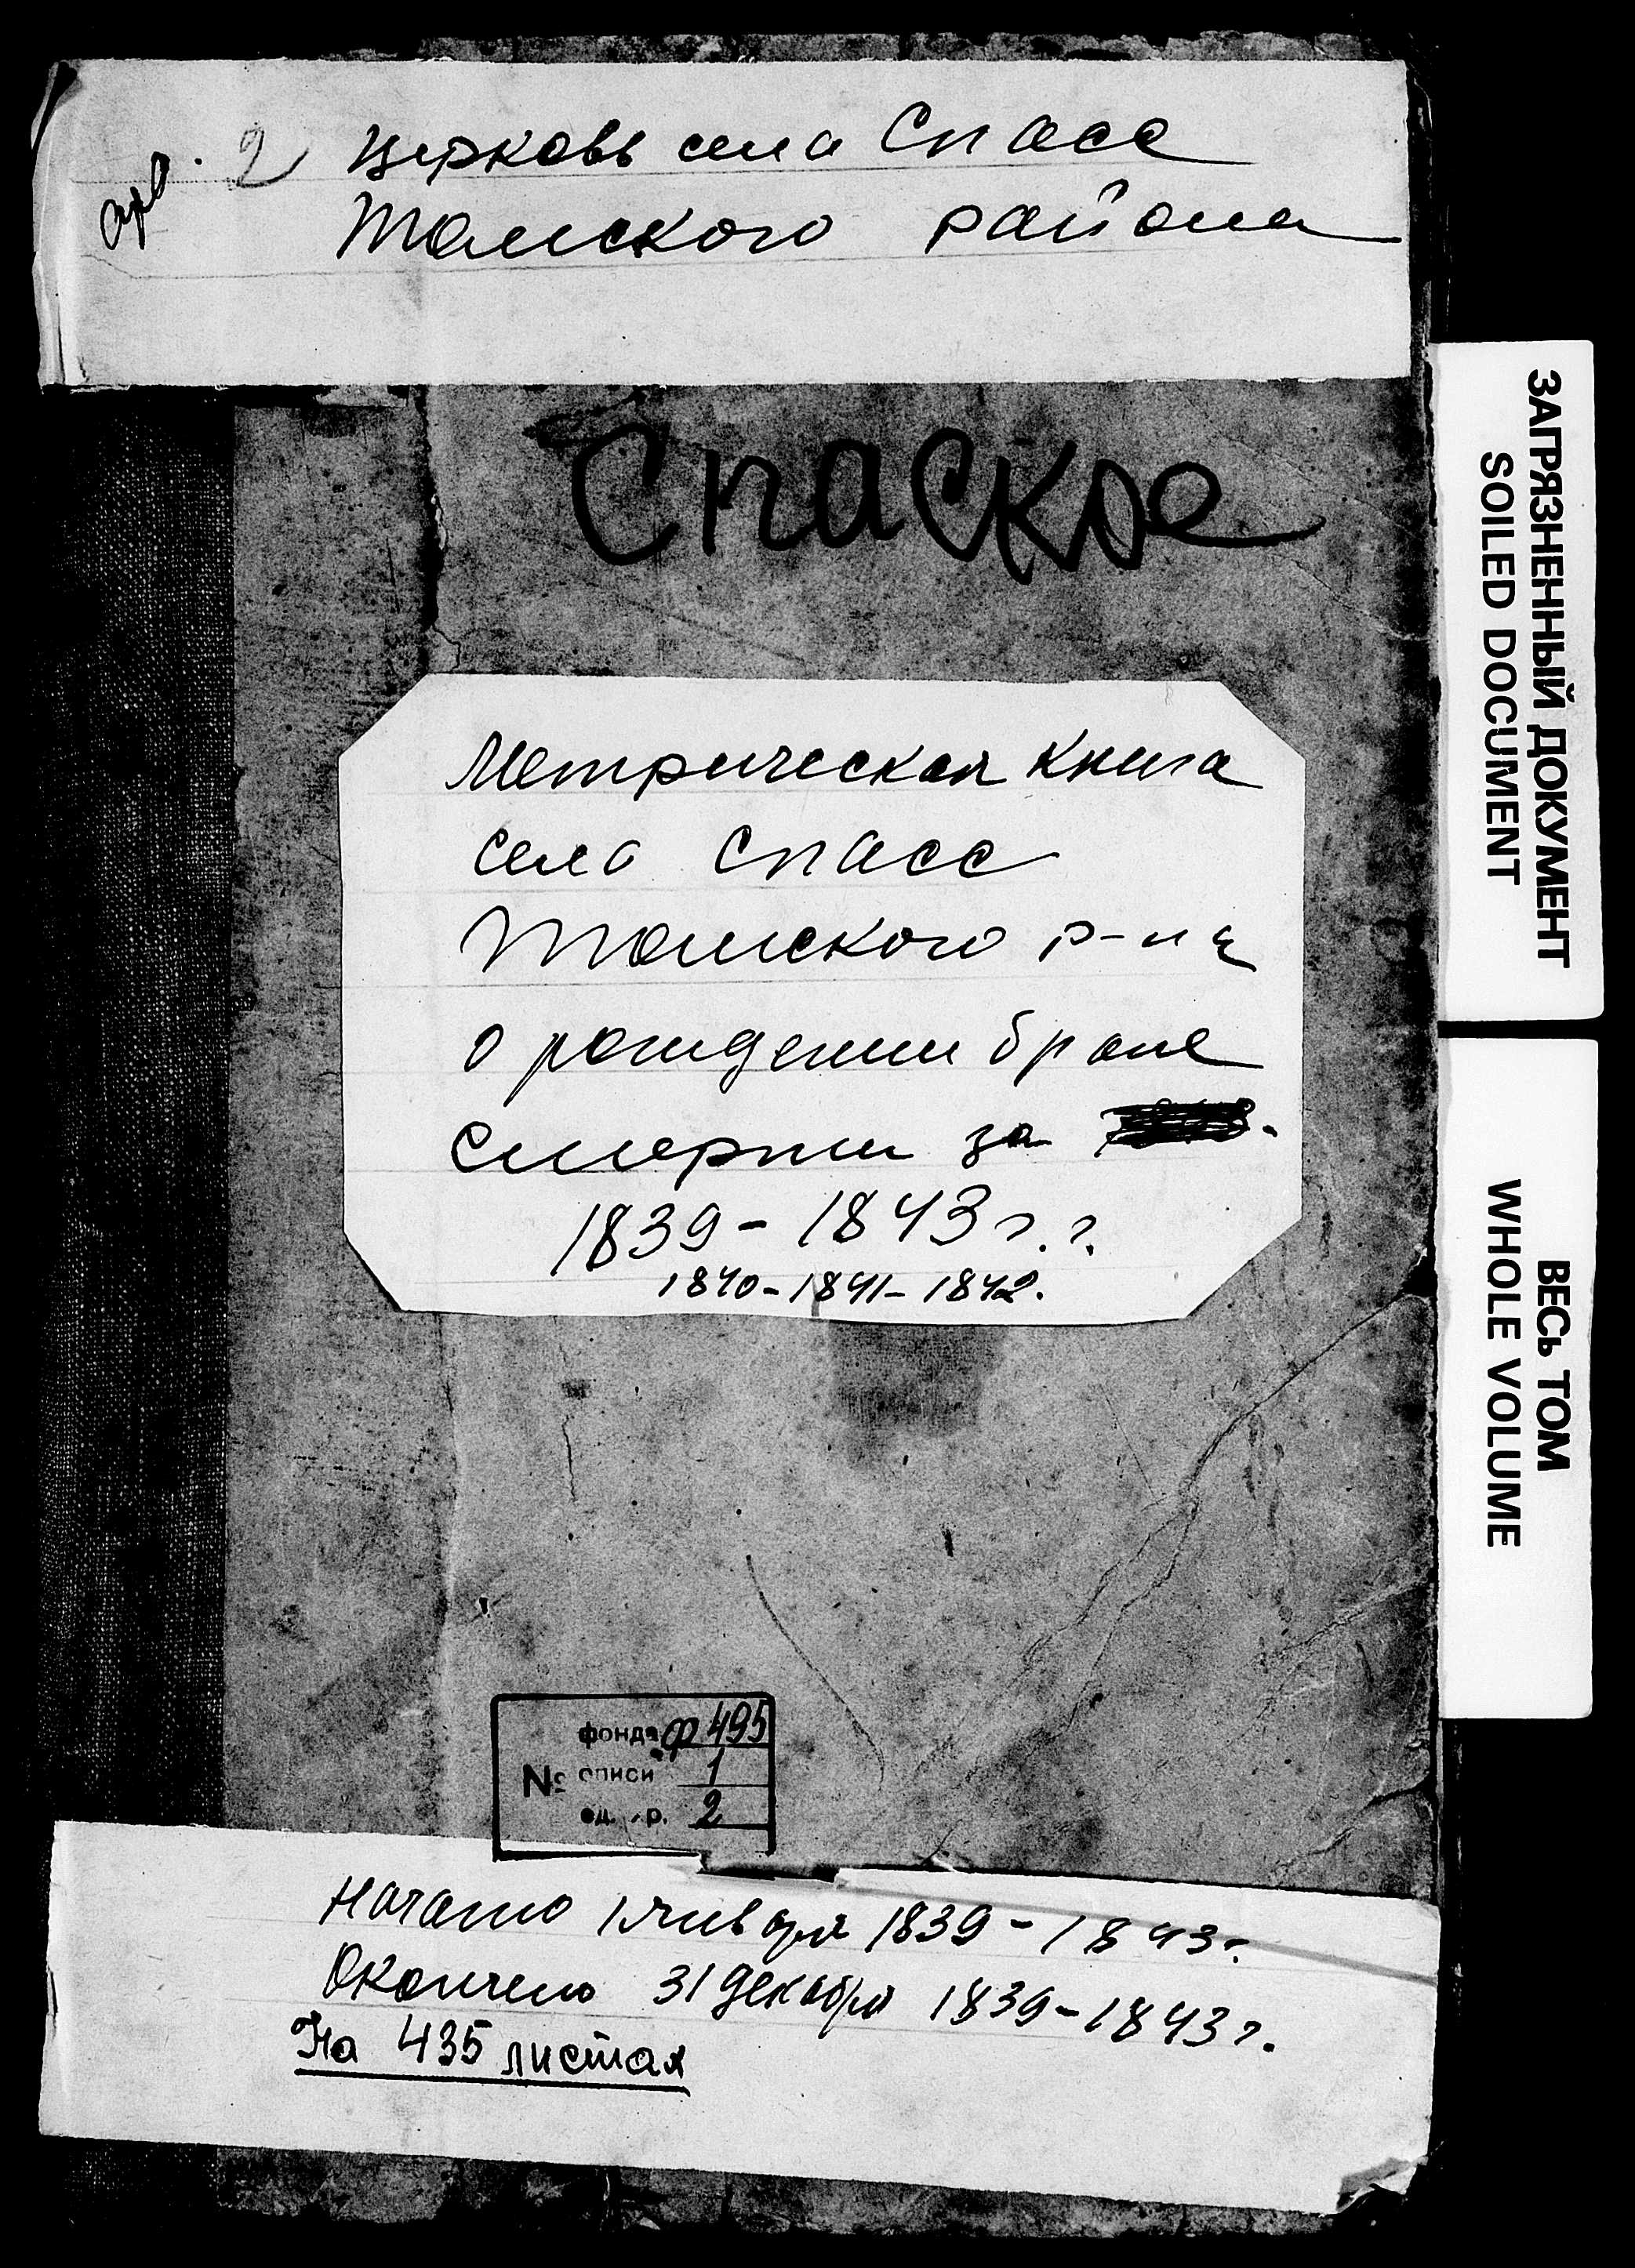 2 Церковь села Спасс
Томского района
Спаское
Метрическая книга
села Спасс
Томского р-на
о рождении браке
смерти за
1839 - 1843 г.г.
1840 - 1841 - 1842.
фонда ф 495
№ описи 1
ед. хр. 2
Начато 1 января 1839 - 1843 г.
Окончено 31 декабря 1839 - 1843 г.
На 435 листах
ЗАГРЯЗНЕННЫЙ ДОКУМЕНТ
SOILED DOCUMENT
ВЕСЬ ТОМ
WHOLE VOLUME